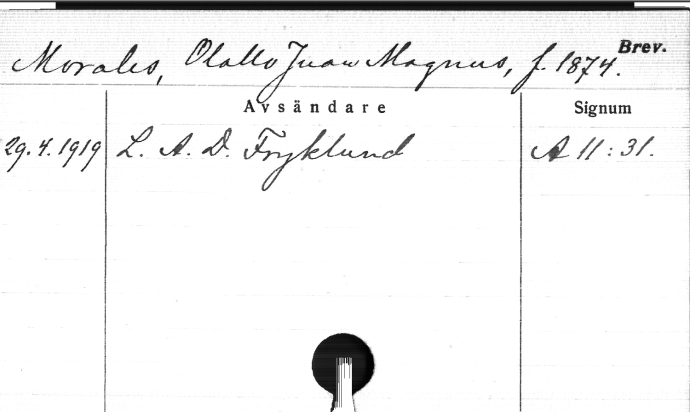 Brev.
Morales, Olallo Juan Magnus, f. 1874.
Avsändare Signum
29.4.1919 L. A. D. Fryklund A 11:31.